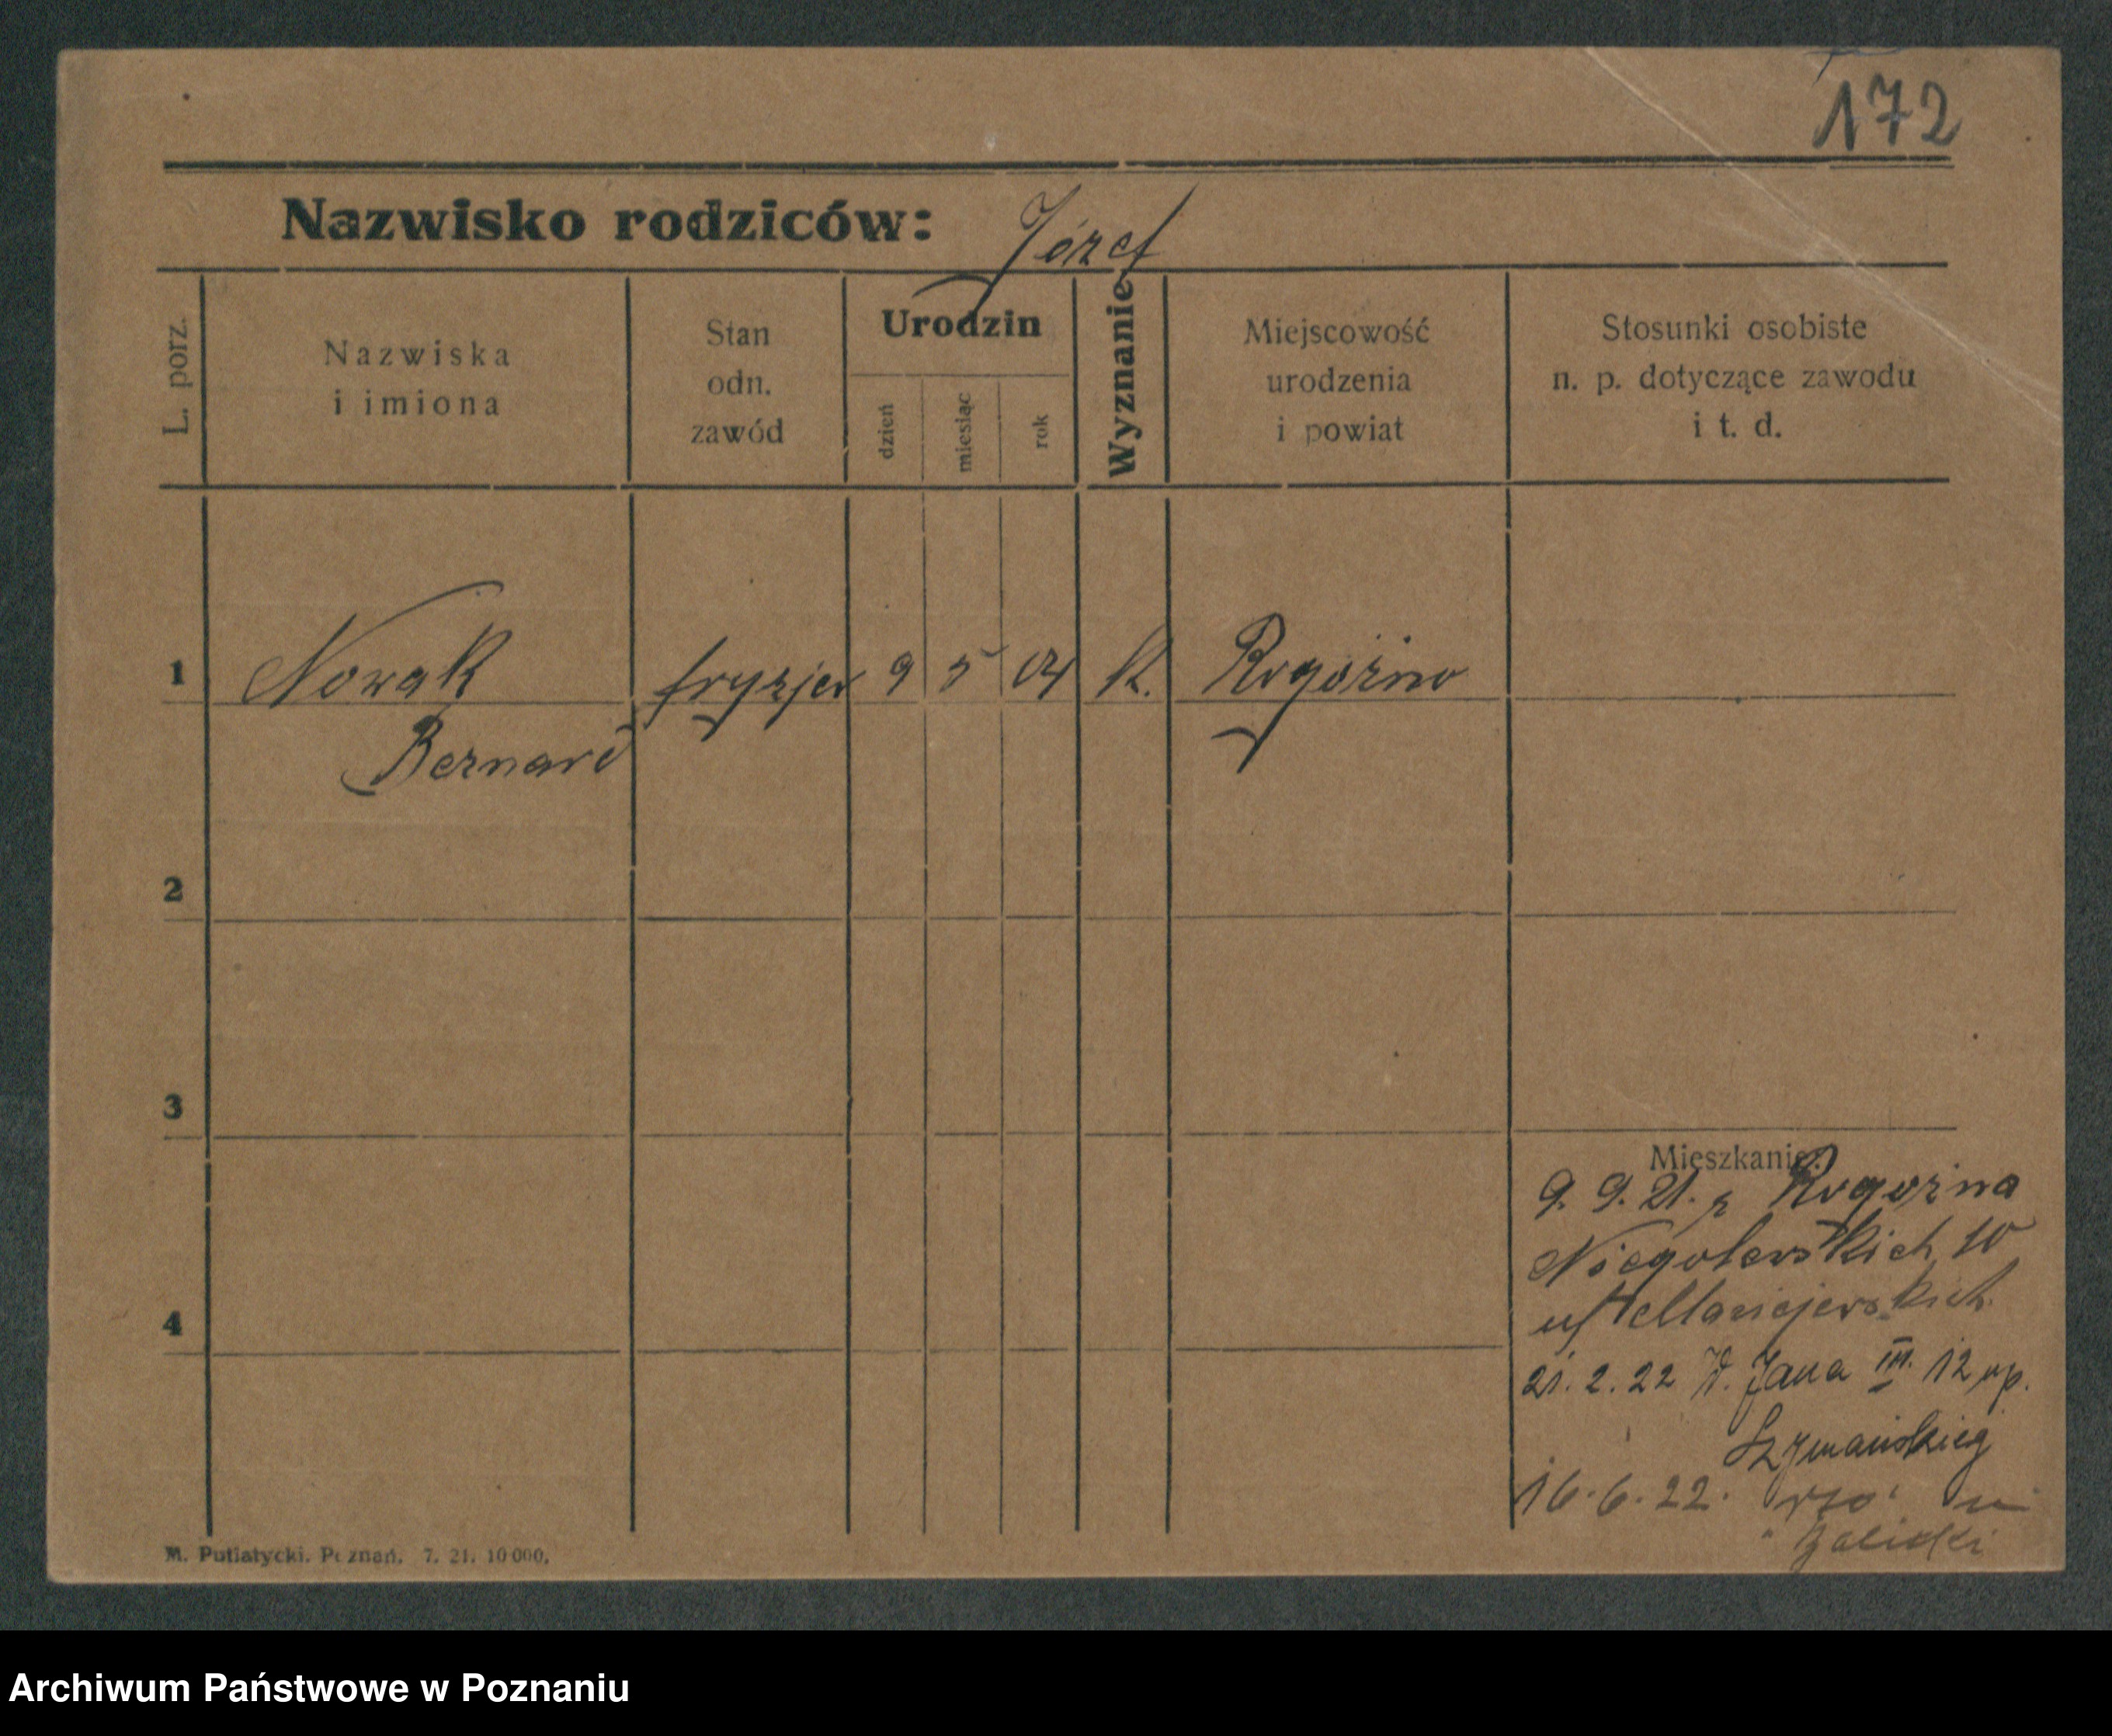 172
Nazwisko rodziców: Józef
L. porz.
Nazwiska
i imiona
Stan
odn.
zawód
Urodzin
dzień
miesiąc
rok
Wyznanie
Miejscowość
urodzenia
i powiat
Stosunki osobiste
n. p. dotyczące zawodu
i t. d.
1 Nowak fryzjer 9 5 04 k. Rogoźno
Bernard
2
3
Mieszkanie:
9. 9. 21. z Rogoźna
Niegolewskich 10
4
21. 2. 22 Jana III. 12 up.
Szymańskieg
16. 6. 22.
M. Putiatycki. Poznań. 7. 21. 10 000.
Archiwum Państwowe w Poznaniu